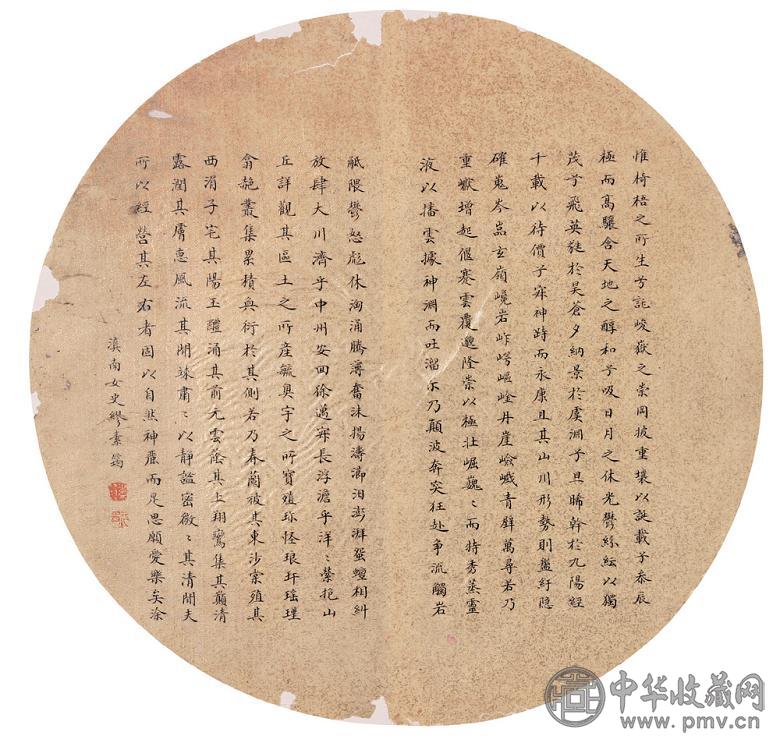 惟椅梧之所生兮託峻嶽之崇岡披重壤以誕載兮参辰
極而高驤含天地之醇和兮吸日月之休光鬱紛紜以獨
茂兮飛英蕤於昊蒼夕納景於虞淵兮旦晞幹於九陽經
千載以待價兮寂神跱而永康且其山川形勢則盤紆隱
確嵬岑嵓玄嶺巉岩岞崿嶇崯丹崖嶮巇青壁萬尋若乃
重巘增起偃蹇雲覆邈隆崇以極壯崛巍〻而特秀蒸靈
液以播雲據神淵而吐溜尔乃顛波奔突狂赴争流觸岩
觝隈鬱怒彪休洶涌騰薄奮沫揚濤瀄汩澎湃蜿蟺相糾
放肆大川濟乎中州安回徐邁寂長浮澹乎洋〻縈抱山
丘詳觀其區土之所産毓奧宇之所寶殖珍怪琅玕瑶瑾
翕赩叢集累積奐衍於其側若乃春蘭被其東沙棠殖其
西涓子宅其陽玉醴涌其前玄雲蔭其上翔鸞集其巔清
露潤其膚惠風流其間竦肅〻以靜謐密微〻其清閒夫
所以經營其左右者固以自然神麗而足思願愛樂矣涂
滇南女史繆素筠
中华收藏网
www.pmv.cn